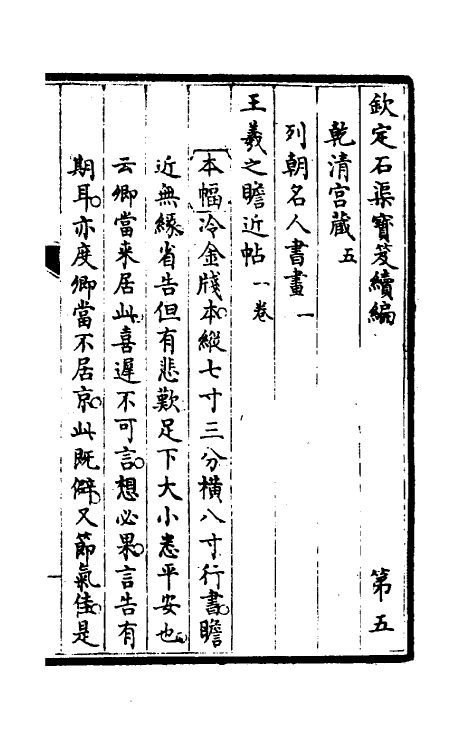 欽定石渠寶笈續編　第五
乾清宮藏五
列朝名人書畫一
王羲之瞻近帖一卷
本幅冷金牋本縱七寸三分橫八寸行書瞻
近無緣省告但有悲歎足下大小悉平安也
云卿當来居此喜遲不可言想必果言告有
期耳亦度卿當不居京此既僻又節氣佳是